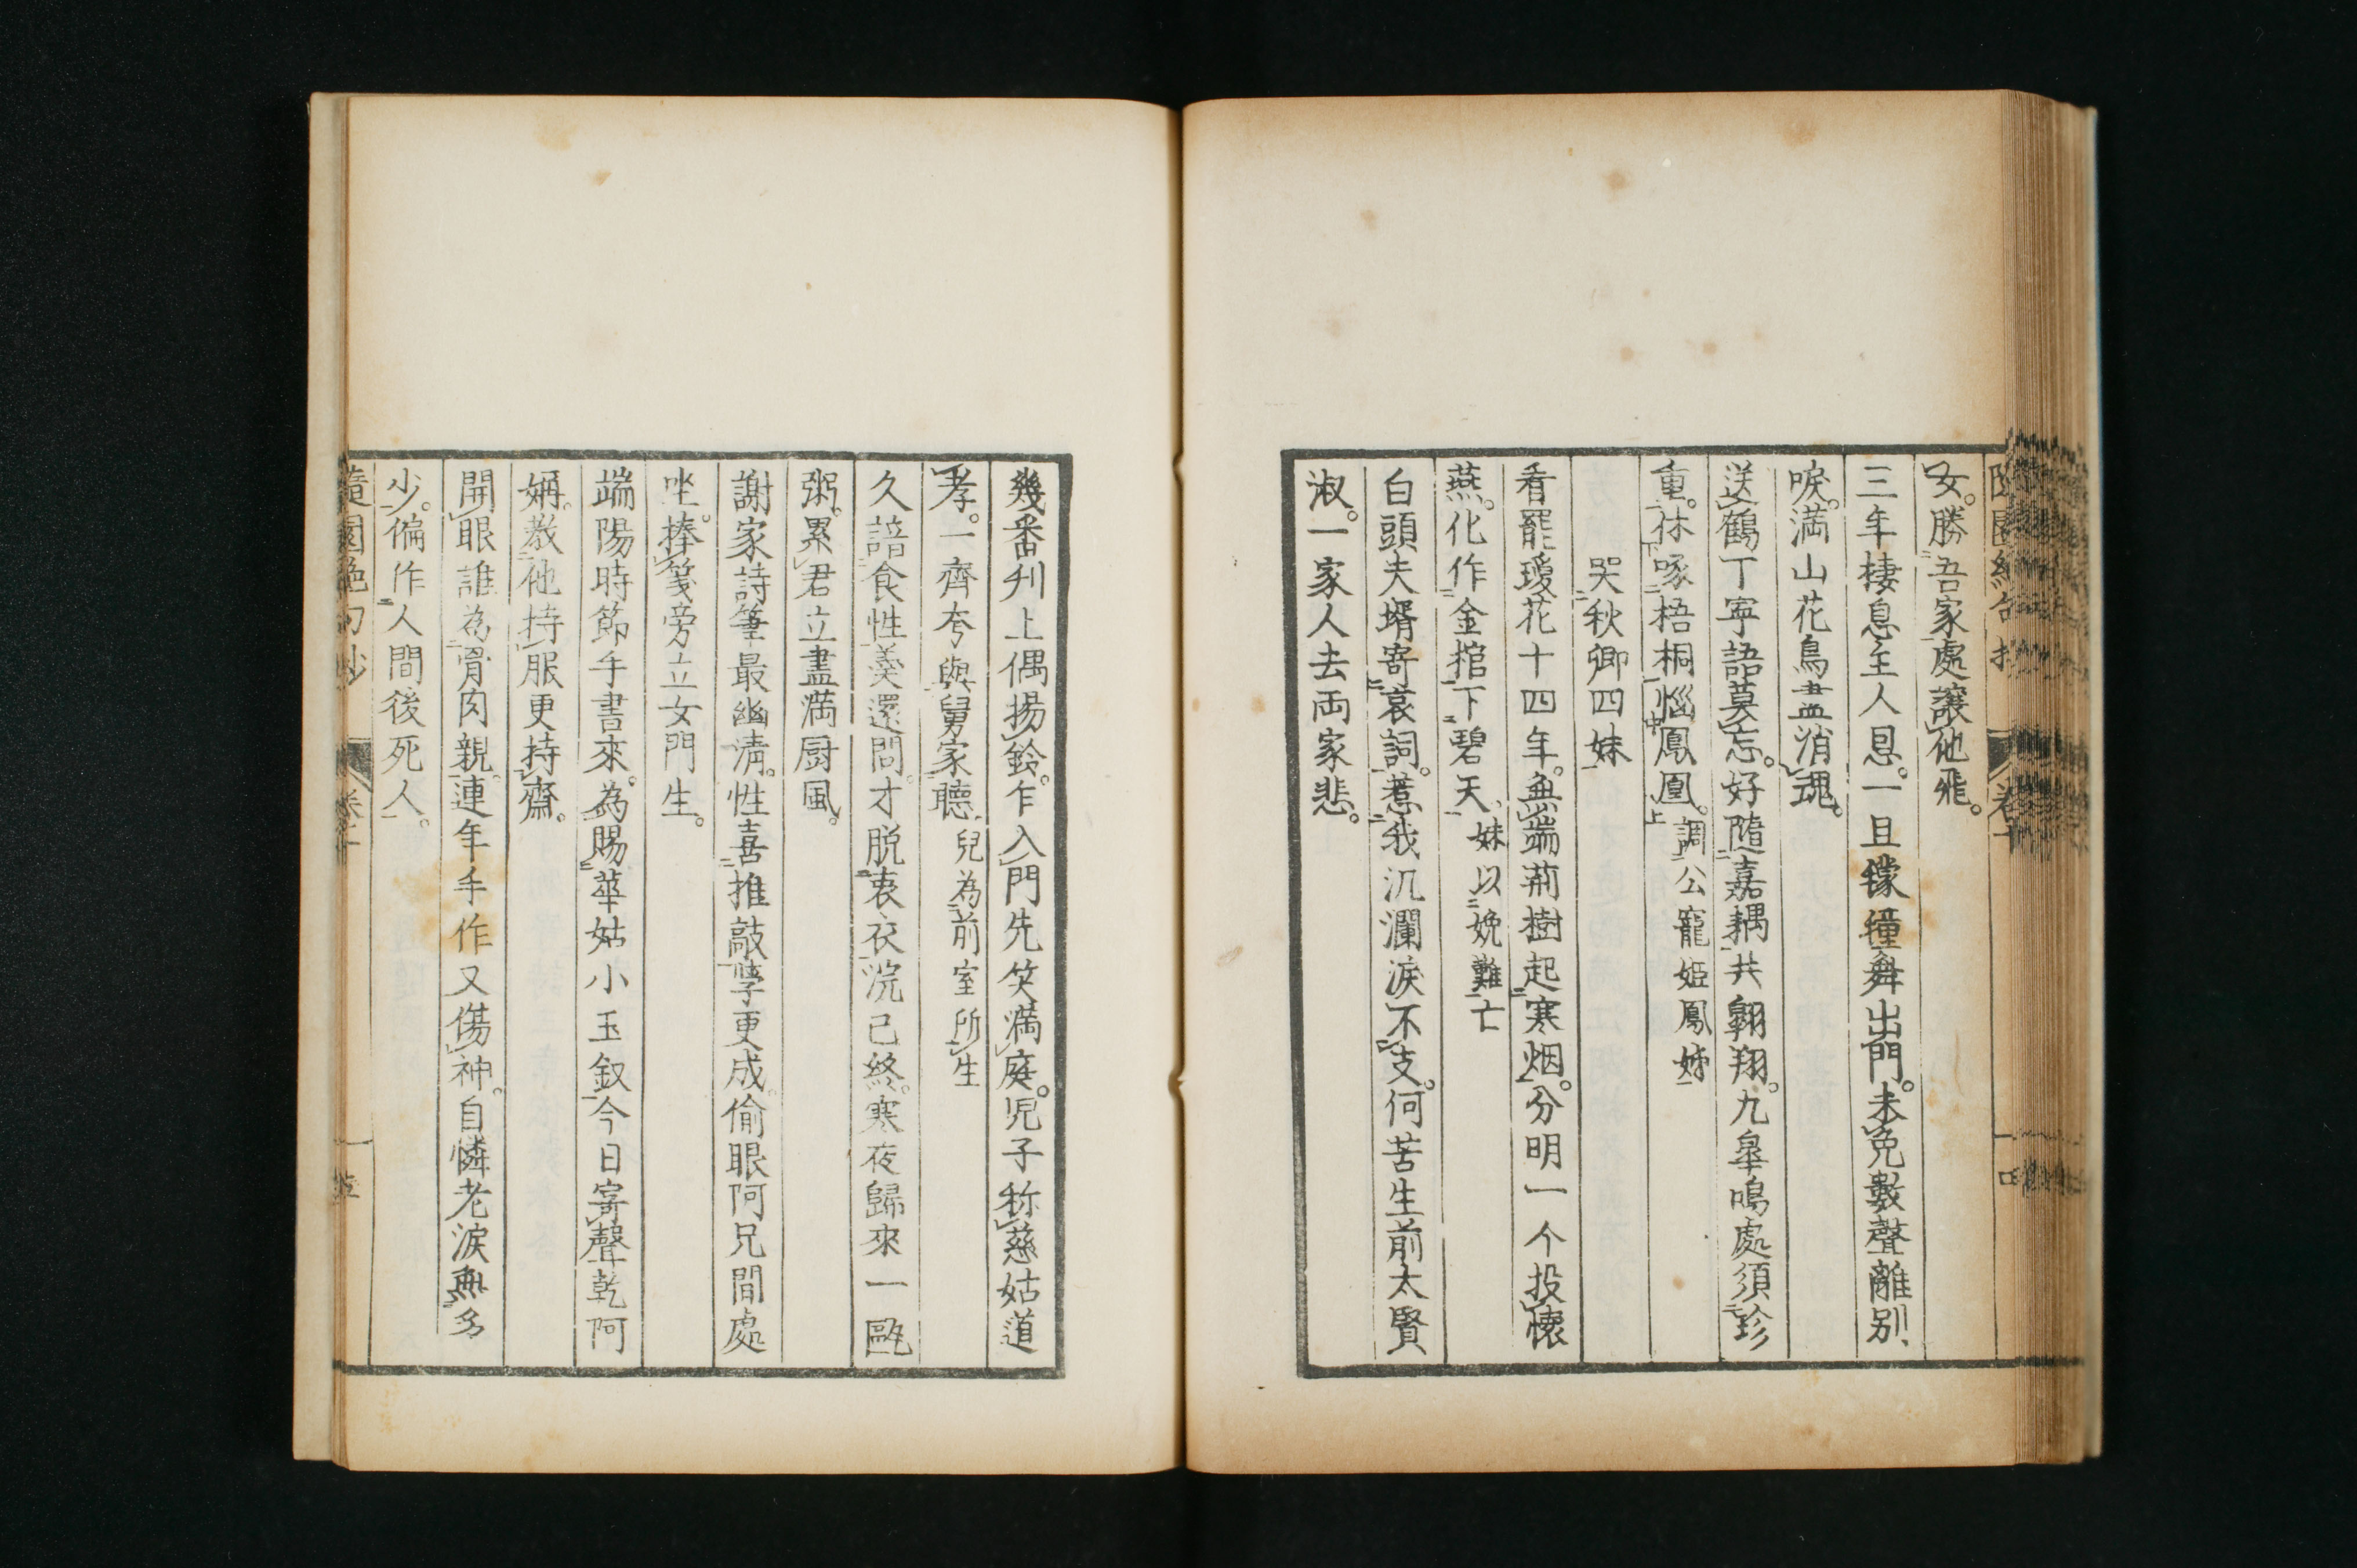 女。勝吾家處讓他飛。
三年棲息主人恩。一旦㲯㲪舞出門。未免數聲離別
唳。満山花鳥盡消魂。
送鶴丁寧語莫忘。好隨嘉耦共翱翔。九皐鳴處須珍
重。休啄梧桐惱鳳凰。調公寵姬鳳姊
哭秋卿四妹
看罷瓊花十四年。無端荊樹起寒烟。分明一个投懷
燕。化作金棺下碧天、妹以娩難亡
白頭夫壻寄哀詞。惹我汍瀾淚不支。何苦生前太賢
淑。一家人去両家悲。
幾番刋上偶揚舲。乍入門先笑満庭。児子称慈姑道
孝。一齊夸與舅家聽、兒為前室所生
久諳食性羮還問。才脱衷衣浣已終。寒夜歸來一甌
粥。累君立盡満厨風。
謝家詩筆最幽清。性喜推敲學更成。偷眼阿兄間處
坐。捧箋旁立女門生。
端陽時節手書來。為賜華姑小玉釵。今日寄聲乾阿
㛿。教他持服更持齋。
開眼誰為骨肉親。連年手作又傷神。自憐老淚無多
少。偏作人間後死人。
隨園絶句抄
卷十
五